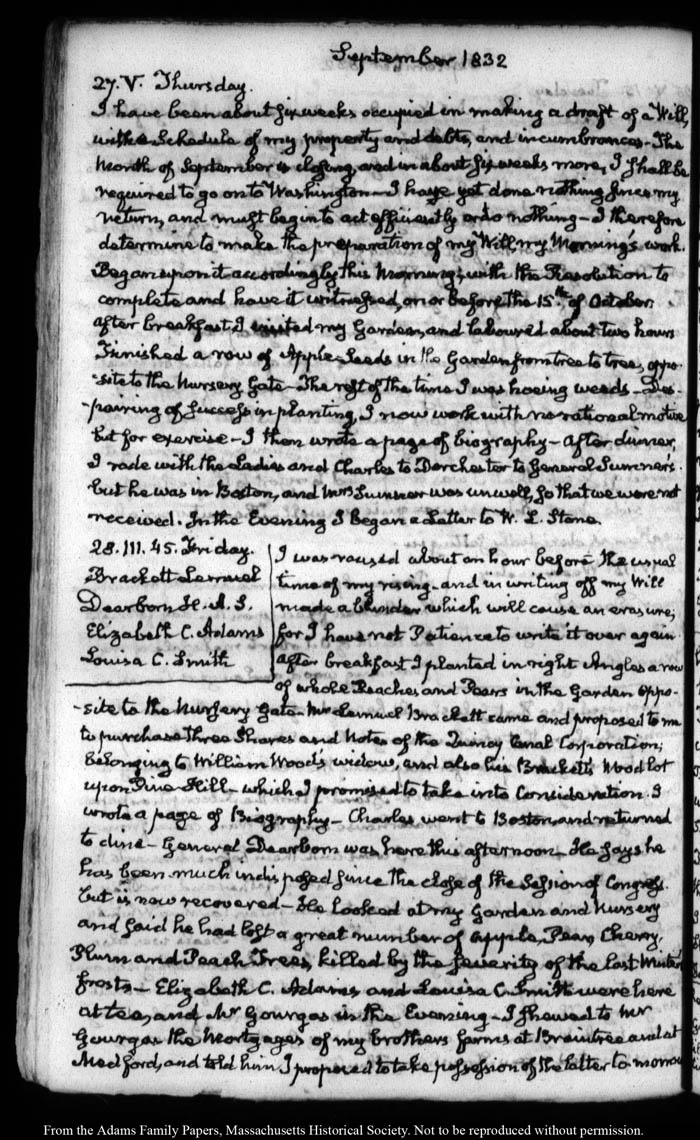 September 1832
27. V. Thursday.
I have been about six weeks occupied in making a draft of a Will,
with a Schedule of my property and debts, and incumbrances. The
Month of September is closing, and in about six weeks more, I shall be
required to go on to Washington— I have yet done nothing since my
return, and must begin to act efficiently or do nothing— I therefore
determine to make the preparation of my Will, my Morning's work.
Began upon it accordingly this Morning; with the Resolution to
complete and have it witnessed, on or before the 15th of October.
After breakfast I visited my Garden, and laboured about two hours
Finished a row of Apple-seeds in the Garden from tree to tree, oppo-
-site to the Nursery Gate— The rest of the time I was hoeing weeds— Des-
-pairing of success in planting, I now work with no rational motive
but for exercise— I then wrote a page of biography— After dinner,
I rode with the Ladies and Charles to Dorchester to General Sumner's.
but he was in Boston, and Mrs Sumner was unwell, so that we were not
received. In the Evening I began a Letter to W. L. Stone.
28. III. 45. Friday.
Brackett Lemuel
Dearborn H. A. S.
Elizabeth C. Adams
Louisa C. Smith
I was roused about an hour before the usual
time of my rising. and in writing off my Will
made a blunder which will cause an erasure;
for I have not Patience to write it over again
After breakfast I planted in right Angles a row
of whole Peaches and Pears in the Garden oppo-
-site to the Nursery Gate— Mr Lemuel Brackett came and proposed to me
to purchase three Shares and Notes of the Quincy Canal Corporation;
belonging to William Wood's widow, and also his Brackett's Wood lot
upon Pine Hill— which I promised to take into Consideration. I
wrote a page of Biography— Charles went to Boston and returned
to dine— General Dearborn was here this afternoon— He says he
has been much indisposed since the close of the Session of Congress.
but is now recovered— He looked at my Garden and Nursery
and said he had lost a great number of Apple, Pear, Cherry,
Plum and Peach Trees, killed by the severity of the last Winter
frosts— Elizabeth C. Adams and Louisa C. Smith were here
at tea, and Mr Gourgas in the Evening— I shewed to Mr
Gourgas the Mortgages of my brothers farms at Braintree and at
Medford, and told him I proposed to take possession of the latter to morrow
From the Adams Family Papers, Massachusetts Historical Society. Not to be reproduced without permission.